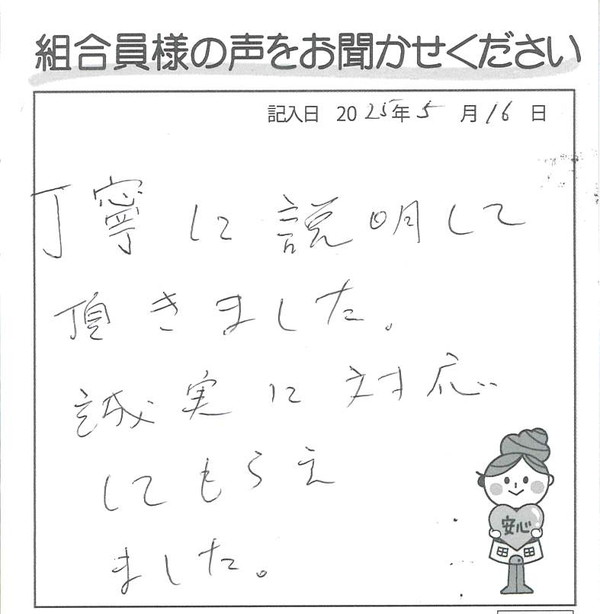 組合員様の声をお聞かせください
記入日 2025年5月16日
丁寧に説明して
頂きました。
誠実に対応
してもらえ
ました。
安心